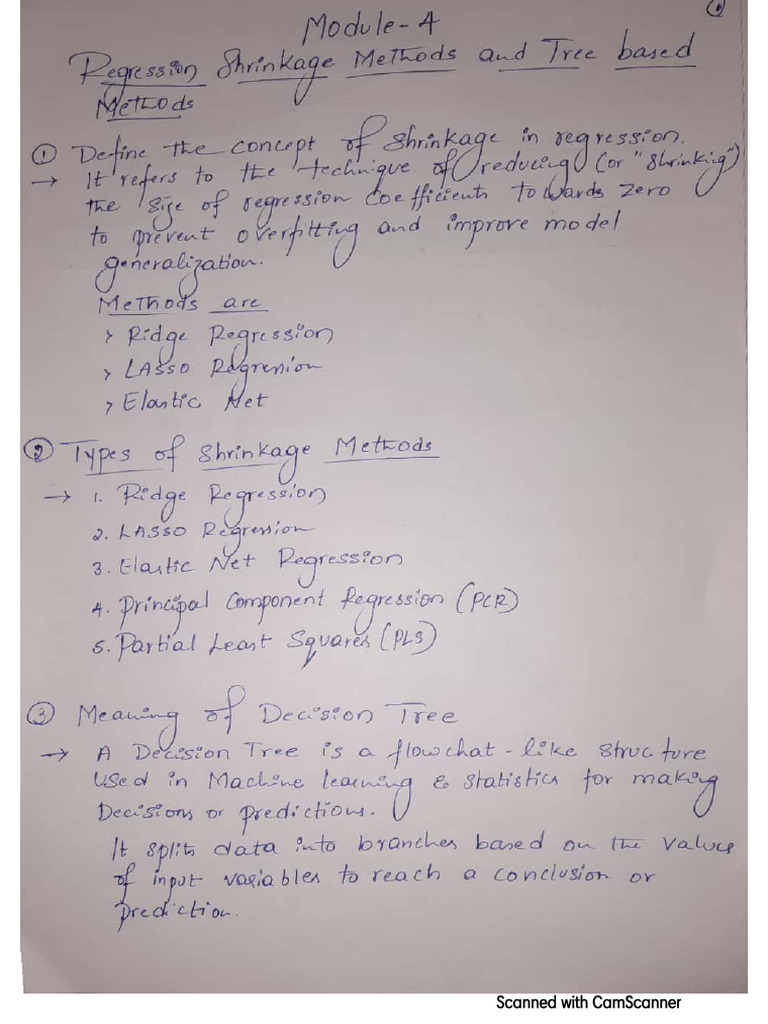 ①
Module-4
Regression Shrinkage Methods and Tree based
Methods
① Define the concept of shrinkage in regression.
→ It refers to the technique of reducing (or "shrinking")
the size of regression coefficients towards zero
to prevent overfitting and improve model
generalization.
Methods are
> Ridge Regression
> LASSO Regression
> Elastic Net
② Types of Shrinkage Methods
→ 1. Ridge Regression
2. LASSO Regression
3. Elastic Net Regression
4. Principal Component Regression (PCR)
5. Partial Least Squares (PLS)
③ Meaning of Decision Tree
→ A Decision Tree is a flowchat-like structure
used in Machine learning & statistics for making
Decisions or predictions.
It split data into branches based on the values
of input variables to reach a conclusion or
prediction.
Scanned with CamScanner